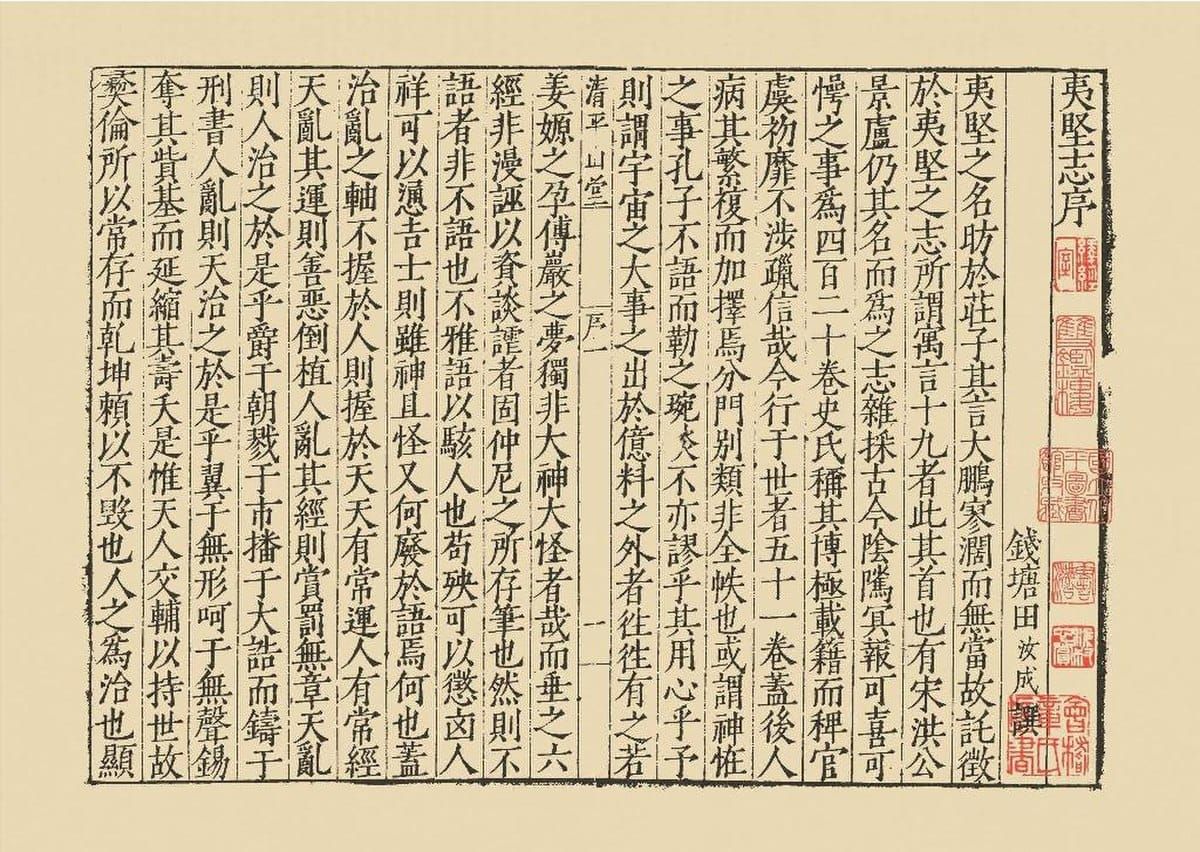 夷堅志序
錢塘田汝成譔
夷堅之名昉於莊子其言大鵬寥濶而無當故託徵
於夷堅之志所謂寓言十九者此其首也有宋洪公
景盧仍其名而爲之志雜採古今陰隲冥報可喜可
愕之事爲四百二十卷史氏稱其博極載籍而稗官
虞初靡不涉躐信哉今行于世者五十一卷蓋後人
病其繁複而加擇焉分門別類非全帙也或謂神恠
之事孔子不語而勒之琬炎不亦謬乎其用心乎予
則謂宇宙之大事之出於億料之外者徃徃有之若
清平山堂
序一
姜嫄之孕傅巖之夢獨非大神大怪者哉而垂之六
經非漫誣以資談謔者固仲尼之所存筆也然則不
語者非不語也不雅語以駭人也苟殃可以懲㐫人
祥可以慂吉士則雖神且怪又何廢於語焉何也蓋
治亂之軸不握於人則握於天天有常運人有常經
天亂其運則善惡倒植人亂其經則賞罰無章天亂
則人治之於是乎爵于朝戮于市播于大誥而鑄于
刑書人亂則天治之於是乎翼于無形呵于無聲錫
奪其貲基而延縮其壽夭是惟天人交輔以持世故
彛倫所以常存而乾坤賴以不毀也人之爲治也顯